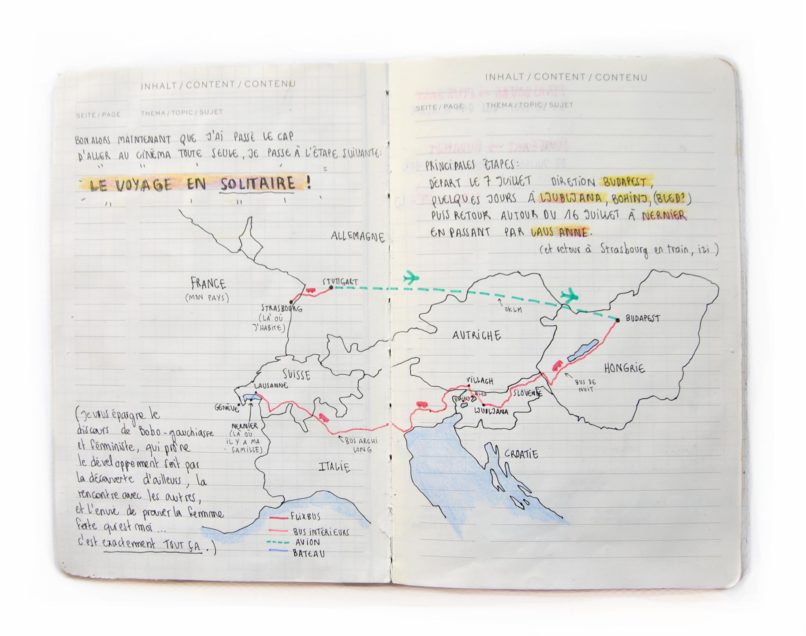 INHALT / CONTENT / CONTENU
SEITE / PAGE THEMA / TOPIC / SUJET
BON ALORS MAINTENANT QUE J'AI PASSÉ LE CAP
D'ALLER AU CINÉMA TOUTE SEULE, JE PASSE À L'ÉTAPE SUIVANTE:
LE VOYAGE EN SOLITAIRE !
ALLEMAGNE
FRANCE
(MON PAYS)
STUTTGART
STRASBOURG
(LÀ OÙ
J'HABITE)
SUISSE
LAUSANNE
GENÈVE
NERNIER
(LÀ OÙ
IL Y A MA
FAMILLE)
BUS ARCHI
LONG
ITALIE
(Je vous épargne le
discours de Bobo-gauchiasse
et féministe, qui prône
le développement soit par
la découverte d'ailleurs, la
rencontre avec les autres,
et l'envie de prouver la femme
forte qu'est moi...
c'est exactement TOUT ÇA.)
FLIXBUS
BUS INTÉRIEURS
AVION
BATEAU
INHALT / CONTENT / CONTENU
SEITE / PAGE THEMA / TOPIC / SUJET
PRINCIPALES ÉTAPES:
DÉPART LE 7 JUILLET DIRETION BUDAPEST,
QUELQUES JOURS À LJUBLJANA, BOHINJ, (BLED?)
PUIS RETOUR AUTOUR DU 16 JUILLET À NERNIER
EN PASSANT PAR LAUSANNE.
(et retour à Strasbourg en train, izi.)
AUTRICHE
BUDAPEST
HONGRIE
BUS DE
NUIT
VILLACH
SLOVÉNIE
LJUBLJANA
CROATIE